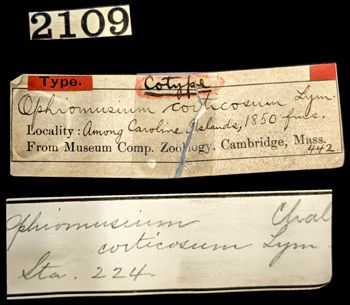 2109
Type. Cotype
Ophiomusium corticosum Lym.
Locality: Among Caroline Islands, 1850 fms.
From Museum Comp. Zoology, Cambridge, Mass.
442
Ophiomusium Chal
corticosum Lym.
Sta. 224.